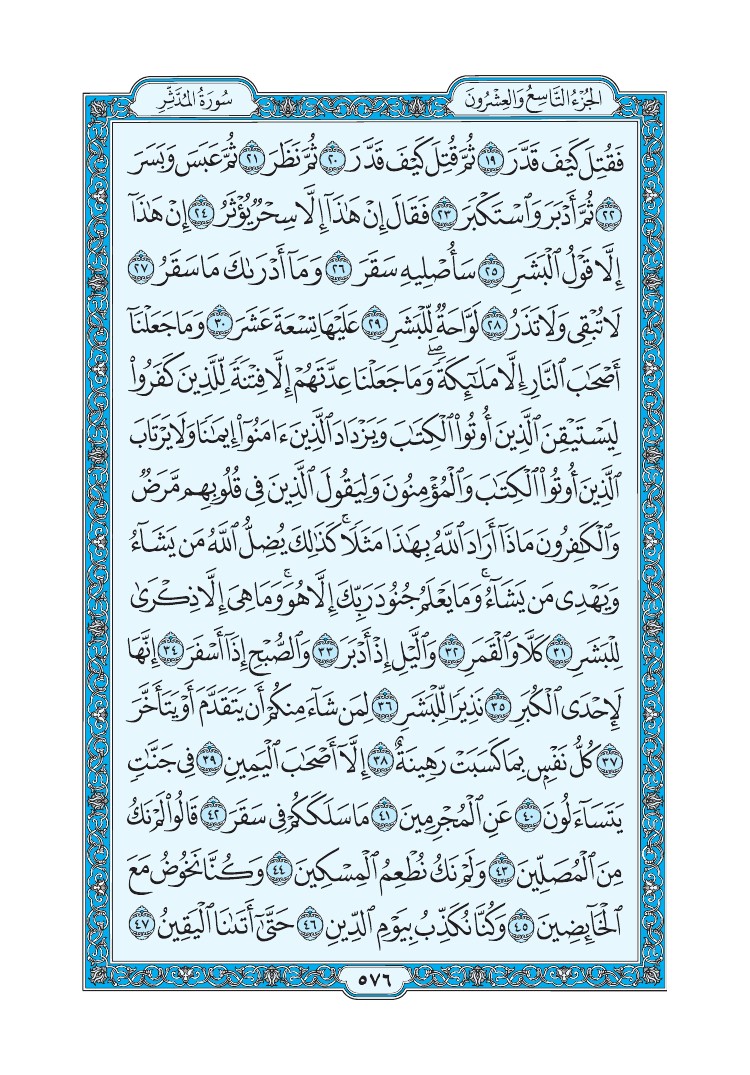 الجُزْءُ التَّاسِعُ وَالعِشْرُونَ
سُورَةُ المُدَّثِّرِ
فَقُتِلَ كَيْفَ قَدَّرَ ١٩ ثُمَّ قُتِلَ كَيْفَ قَدَّرَ ٢٠ ثُمَّ نَظَرَ ٢١ ثُمَّ عَبَسَ وَبَسَرَ
٢٢ ثُمَّ أَدْبَرَ وَٱسْتَكْبَرَ ٢٣ فَقَالَ إِنْ هَٰذَآ إِلَّا سِحْرٌ يُؤْثَرُ ٢٤ إِنْ هَٰذَآ
إِلَّا قَوْلُ ٱلْبَشَرِ ٢٥ سَأُصْلِيهِ سَقَرَ ٢٦ وَمَآ أَدْرَىٰكَ مَا سَقَرُ ٢٧
لَا تُبْقِى وَلَا تَذَرُ ٢٨ لَوَّاحَةٌ لِّلْبَشَرِ ٢٩ عَلَيْهَا تِسْعَةَ عَشَرَ ٣٠ وَمَا جَعَلْنَآ
أَصْحَٰبَ ٱلنَّارِ إِلَّا مَلَٰٓئِكَةً ۙ وَمَا جَعَلْنَا عِدَّتَهُمْ إِلَّا فِتْنَةً لِّلَّذِينَ كَفَرُوا۟
لِيَسْتَيْقِنَ ٱلَّذِينَ أُوتُوا۟ ٱلْكِتَٰبَ وَيَزْدَادَ ٱلَّذِينَ ءَامَنُوٓا۟ إِيمَٰنًا وَلَا يَرْتَابَ
ٱلَّذِينَ أُوتُوا۟ ٱلْكِتَٰبَ وَٱلْمُؤْمِنُونَ وَلِيَقُولَ ٱلَّذِينَ فِى قُلُوبِهِم مَّرَضٌ
وَٱلْكَٰفِرُونَ مَاذَآ أَرَادَ ٱللَّهُ بِهَٰذَا مَثَلًا ۚ كَذَٰلِكَ يُضِلُّ ٱللَّهُ مَن يَشَآءُ
وَيَهْدِى مَن يَشَآءُ ۚ وَمَا يَعْلَمُ جُنُودَ رَبِّكَ إِلَّا هُوَ ۚ وَمَا هِىَ إِلَّا ذِكْرَىٰ
لِلْبَشَرِ ٣١ كَلَّا وَٱلْقَمَرِ ٣٢ وَٱلَّيْلِ إِذْ أَدْبَرَ ٣٣ وَٱلصُّبْحِ إِذَآ أَسْفَرَ ٣٤ إِنَّهَا
لَإِحْدَى ٱلْكُبَرِ ٣٥ نَذِيرًا لِّلْبَشَرِ ٣٦ لِمَن شَآءَ مِنكُمْ أَن يَتَقَدَّمَ أَوْ يَتَأَخَّرَ
٣٧ كُلُّ نَفْسٍۭ بِمَا كَسَبَتْ رَهِينَةٌ ٣٨ إِلَّآ أَصْحَٰبَ ٱلْيَمِينِ ٣٩ فِى جَنَّٰتٍ
يَتَسَآءَلُونَ ٤٠ عَنِ ٱلْمُجْرِمِينَ ٤١ مَا سَلَكَكُمْ فِى سَقَرَ ٤٢ قَالُوا۟ لَمْ نَكُ
مِنَ ٱلْمُصَلِّينَ ٤٣ وَلَمْ نَكُ نُطْعِمُ ٱلْمِسْكِينَ ٤٤ وَكُنَّا نَخُوضُ مَعَ
ٱلْخَآئِضِينَ ٤٥ وَكُنَّا نُكَذِّبُ بِيَوْمِ ٱلدِّينِ ٤٦ حَتَّىٰٓ أَتَىٰنَا ٱلْيَقِينُ ٤٧
٥٧٦